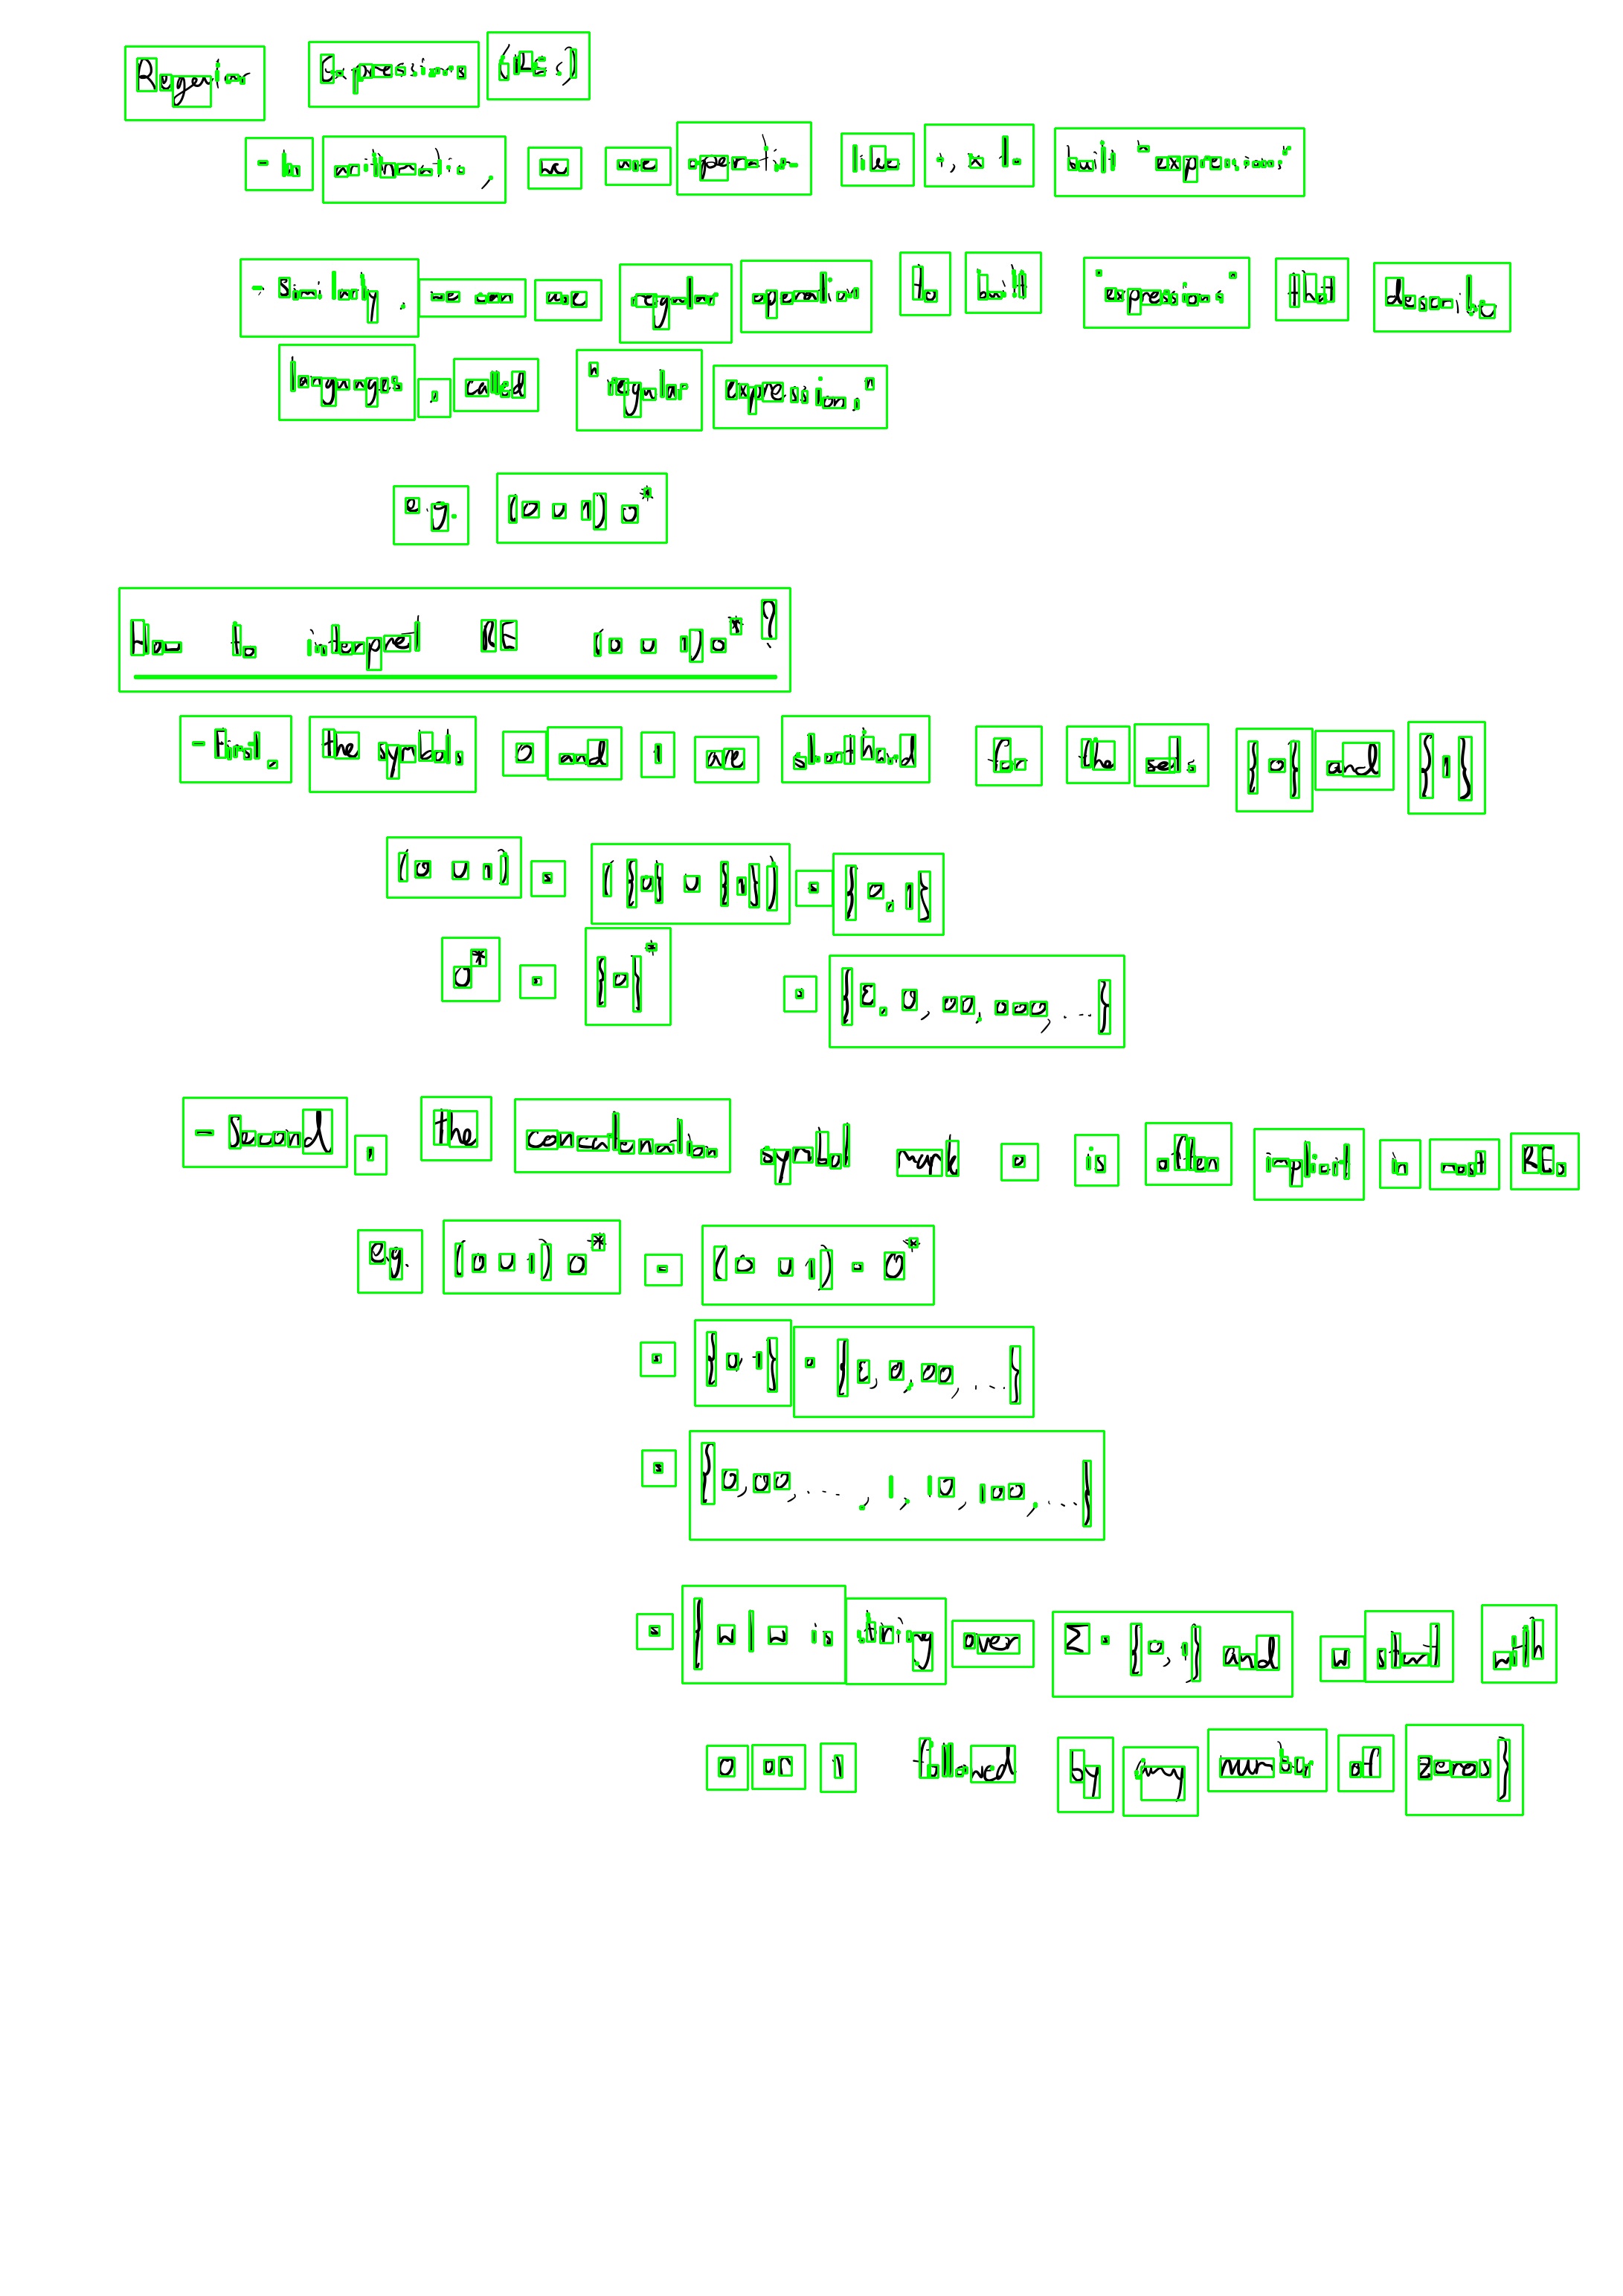 Regular Expressions (REs)
- In arithmatic, we use operation like +, x to built "expressions"
- Similarly, we can use regular operation to built "expressions" that describe
languages, called "regular expressions"
e.g. (0 ∪ 1) 0*
How to interpret RE (0 ∪ 1)0* ?
- First, the symbols 0 and 1 are shorthand for the sets {0} and {1}
(0 ∪ 1) = ({0} ∪ {1}) = {0, 1}
0* = {0}* = {ε, 0, 00, 000, ...}
- Second, the concatenation symbol mark ∘ is often implicit in most REs
e.g. (0 ∪ 1) 0* = (0 ∪ 1) ∘ 0*
= {0, 1} ∘ {ε, 0, 00, ...}
= {0, 00, ..., 1, 10, 100, ...}
= {w | w is string over Σ = {0, 1} and w start with
0 or 1 followed by any number of zeros}